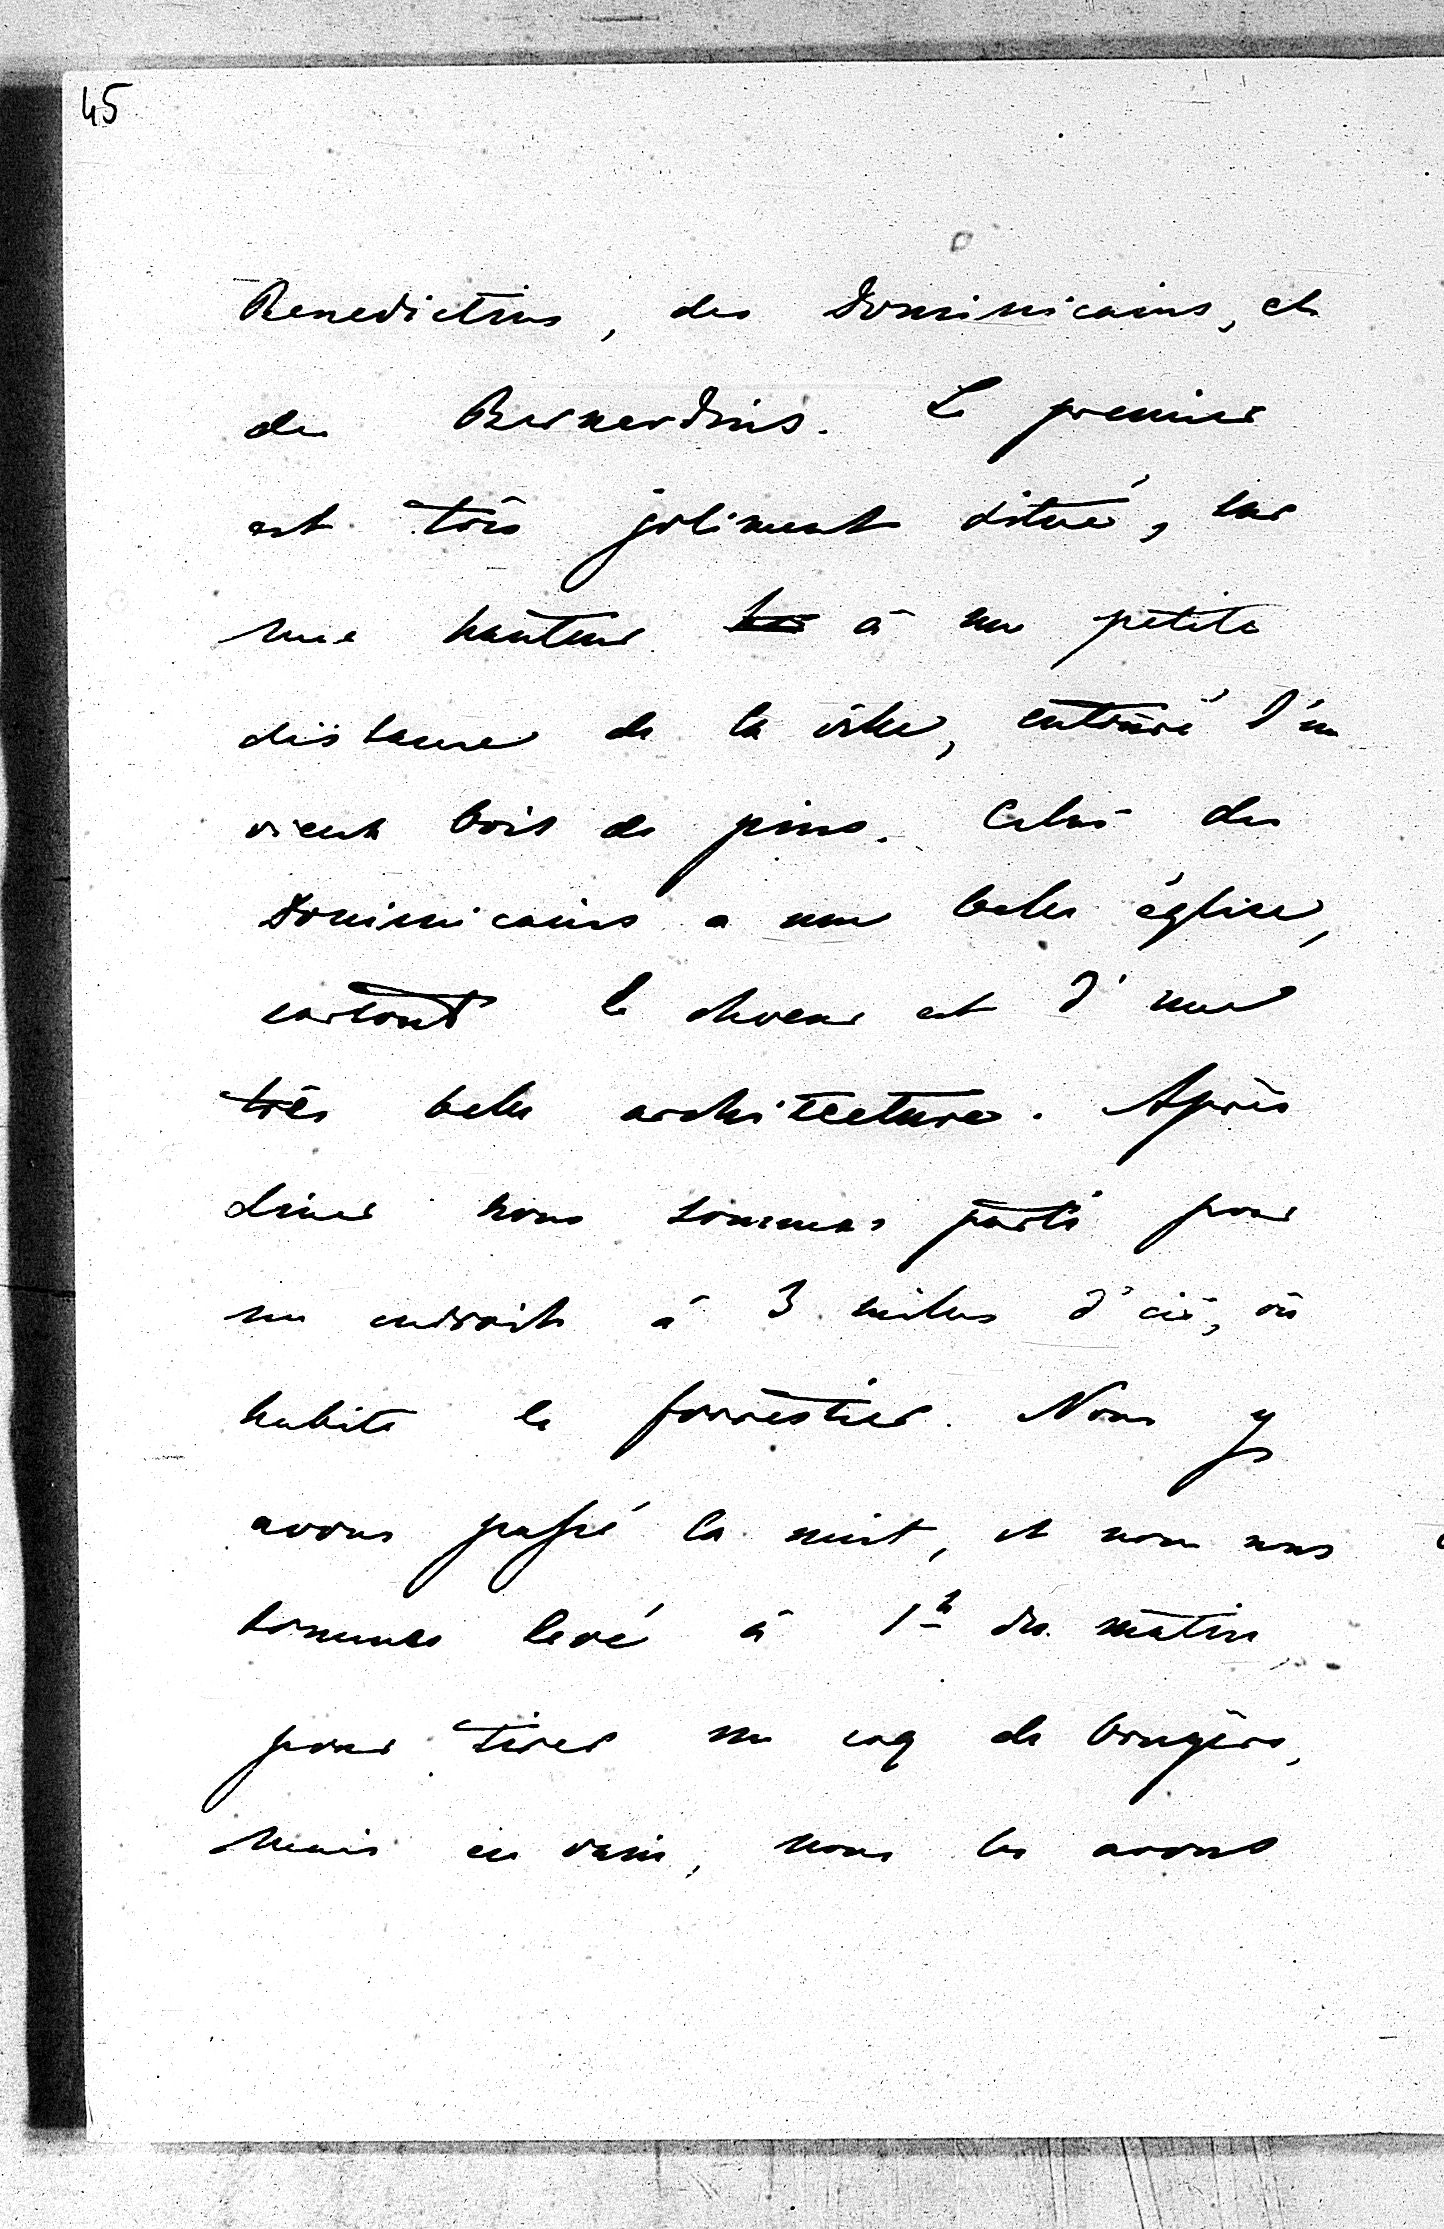 45
Benedictins, des Dominicains, et
des Bernardins. Le premier
est très joliment situé, sur
une hauteur à une petite
distance de la ville, entouré d'un
vieux bois de pins. Celui des
Dominicains a une belle église,
surtout le choeur est d'une
très belle architecture. Après
diner nous sommes parti pour
un endroit à 3 milles d'ici, où
habite le forrestier. Nous y
avons passé la nuit, et nous nous
sommes levé à 1h du matin
pour tirer un coq de bruyère,
mais en vain, nous les avons